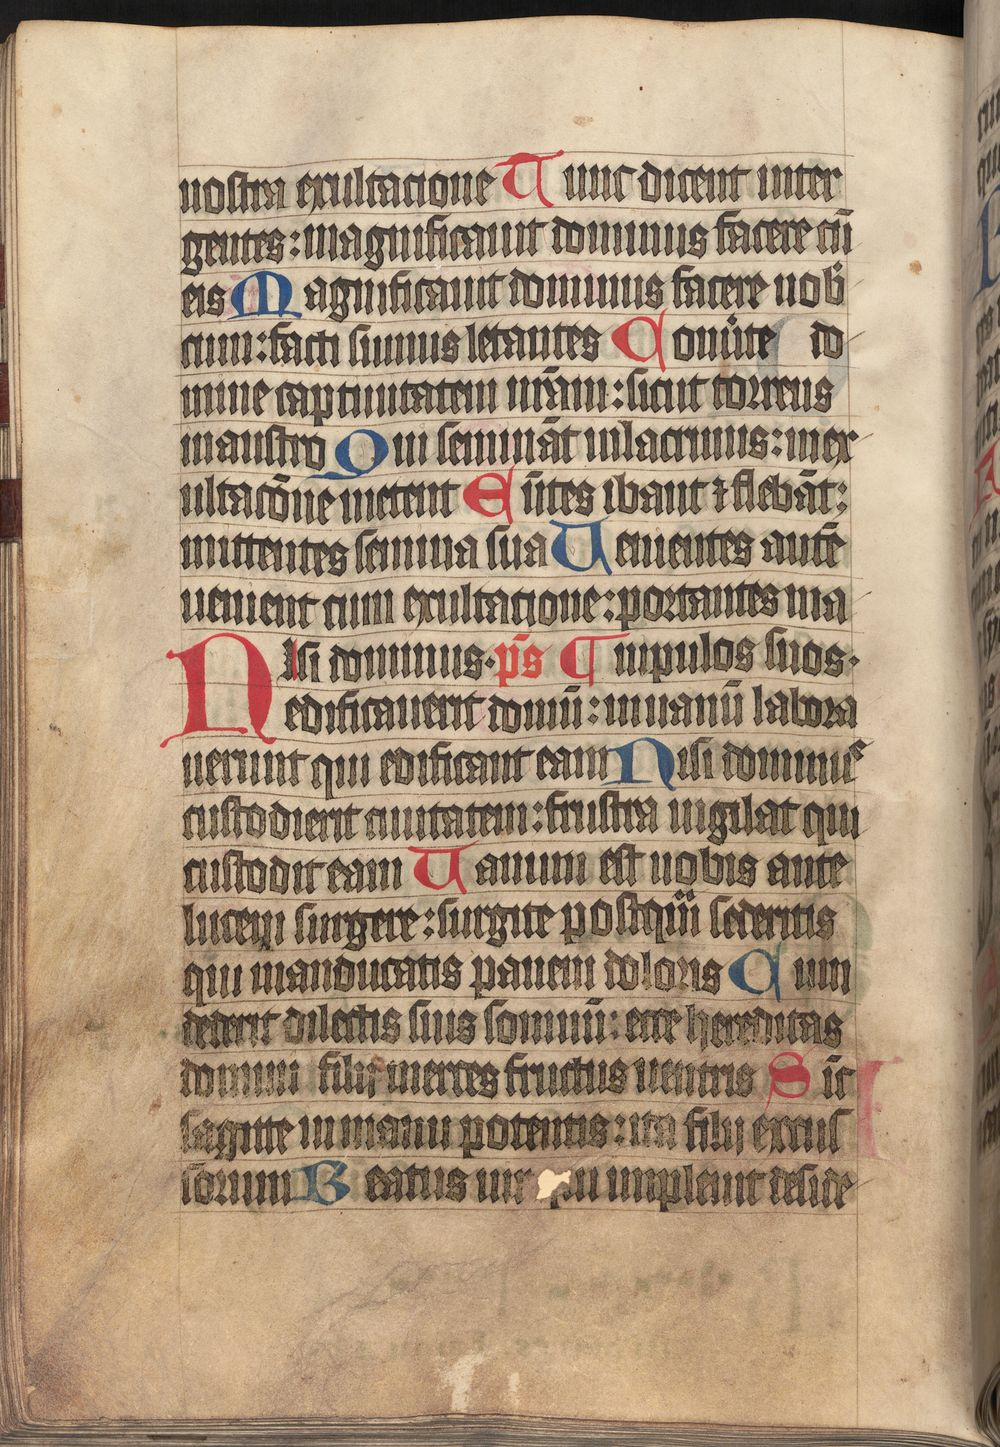 nostra exultacione Tunc dicent inter
gentes: magnificauit dominus facere cū
eis Magnificauit dominus facere nob
cum: facti sumus letantes Conūte do
mine captiuitatem nr̄am: sicut torrens
inaustro Qui semināt inlacrimis: inex
ultacōne metent Eūtes ibant ⁊ flebāt:
mittentes semina sua Uenientes autē
uenient cum exultacione: portantes ma
Nisi dominus. ps̄ nipulos suos.
edificauerit domū: inuanū labora
uerunt qui edificant eam Nisi dominus
custodierit ciuitatem: frustra uigilat qui
custodit eam Uanum est uobis ante
lucem surgere: surgite postq̄m sederitis
qui manducatis panem doloris Cum
dederit dilectis suis somnū: ecce hereditas
domini filij merces fructus uentris Sic̄
sagitte in manu potentis: ita filij excus
sorum Beatus uir qui impleuit deside